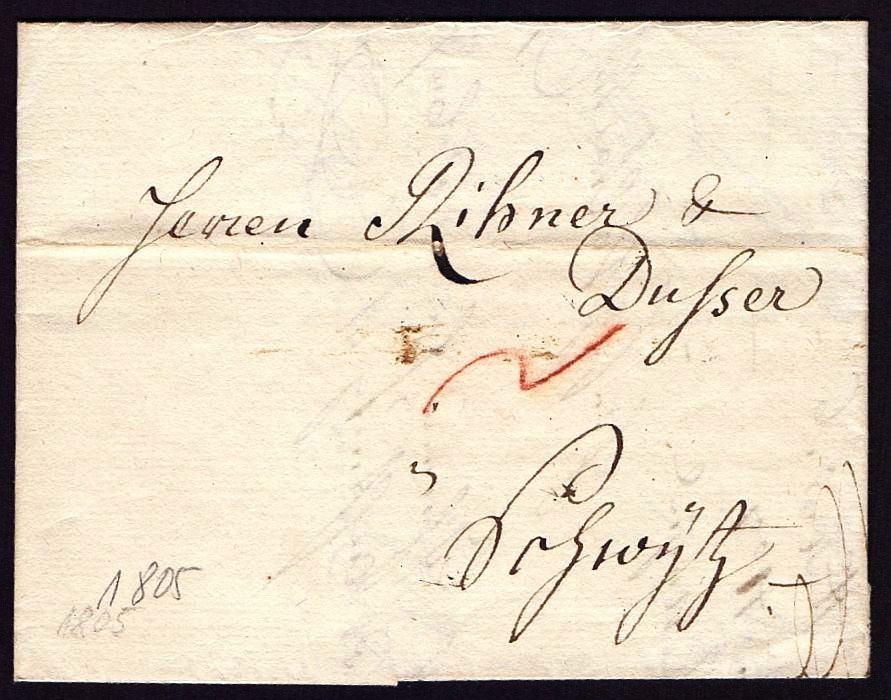 Herren Rihner &
Dusser
Schwÿtz
1805
1805